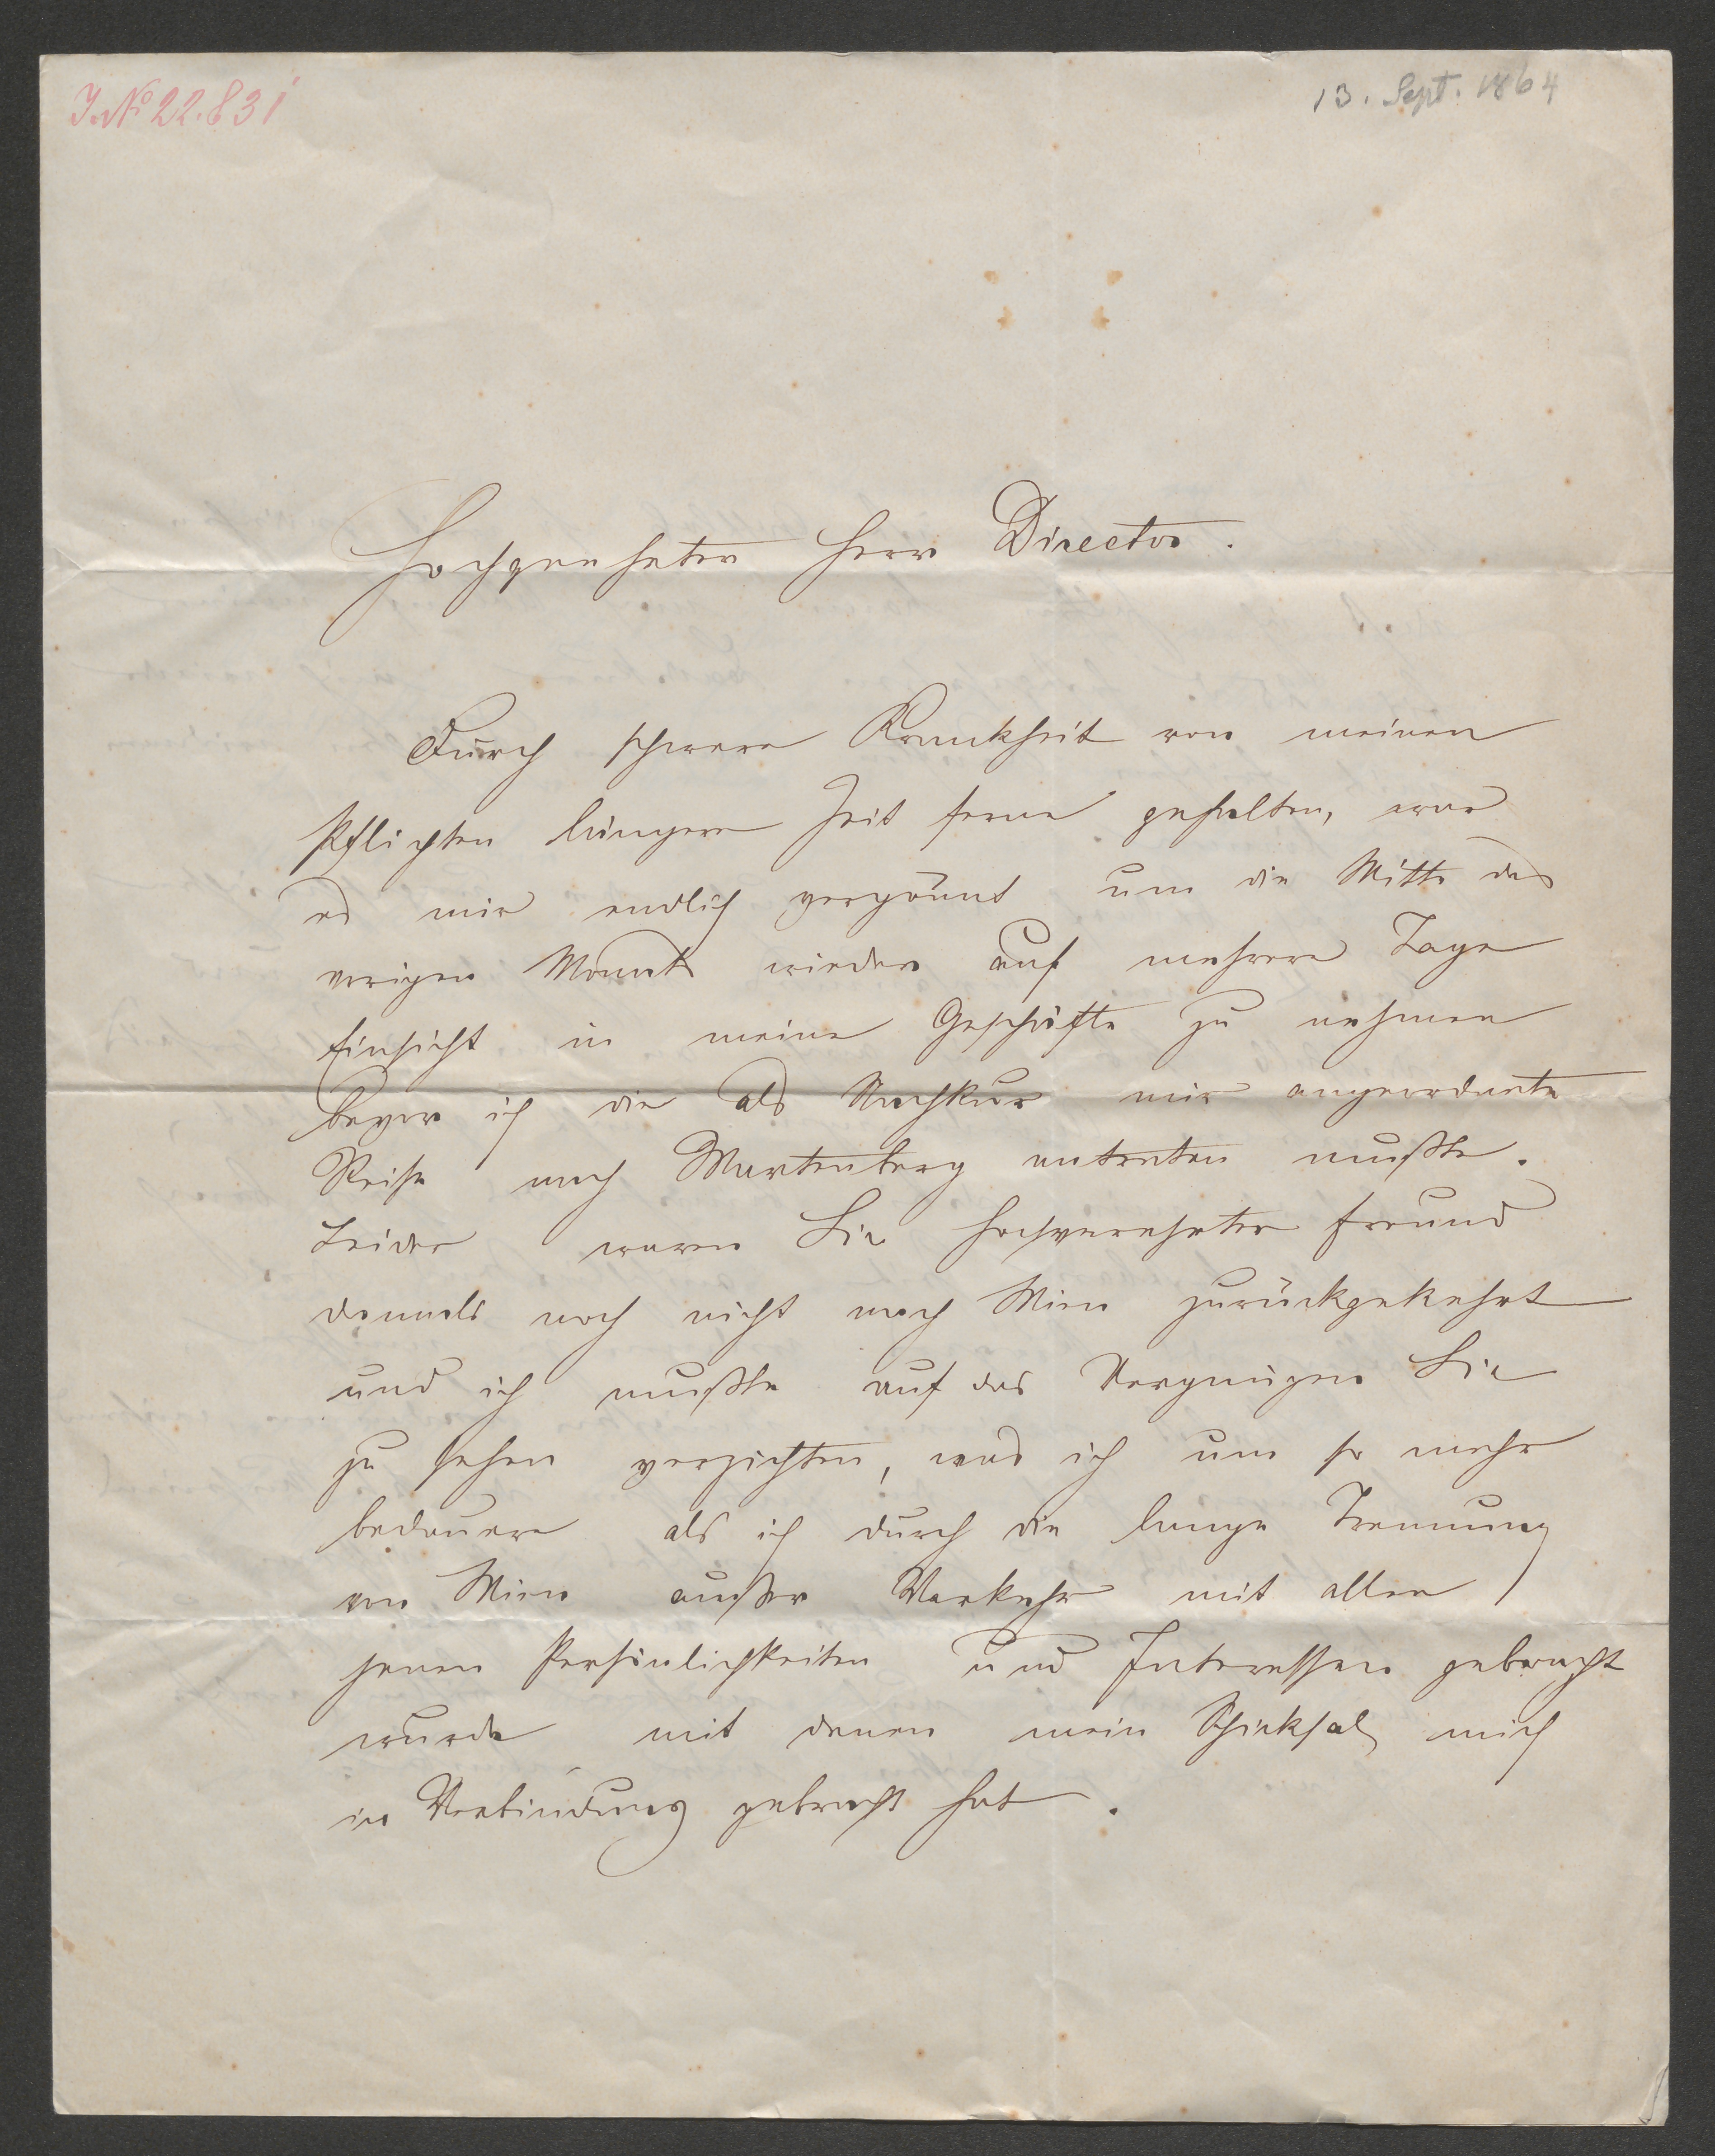 I.N° 22.831
13. Sept. 1864
Hochgeehrter Herr Director.
Durch schwere Krankheit von meinen
Pflichten längere Zeit ferne gehalten, war
es mir endlich vergönnt um die Mitte des
vorigen Monats wieder auf mehrere Tage
Einsicht in meine Geschäfte zu nehmen
bevor ich die als Nachkur mir angeordnete
Reise nach Wartenberg antreten mußte.
Leider waren Sie hochverehrter Freund
damals noch nicht nach Wien zurückgekehrt
und ich mußte auf das Vergnügen Sie
zu sehen verzichten, was ich um so mehr
bedauere als ich durch die lange Trennung
von Wien außer Verkehr mit allen
jenen Persönlichkeiten und Interessen gebracht
wurde mit denen mein Schicksal mich
in Verbindung gebracht hat.